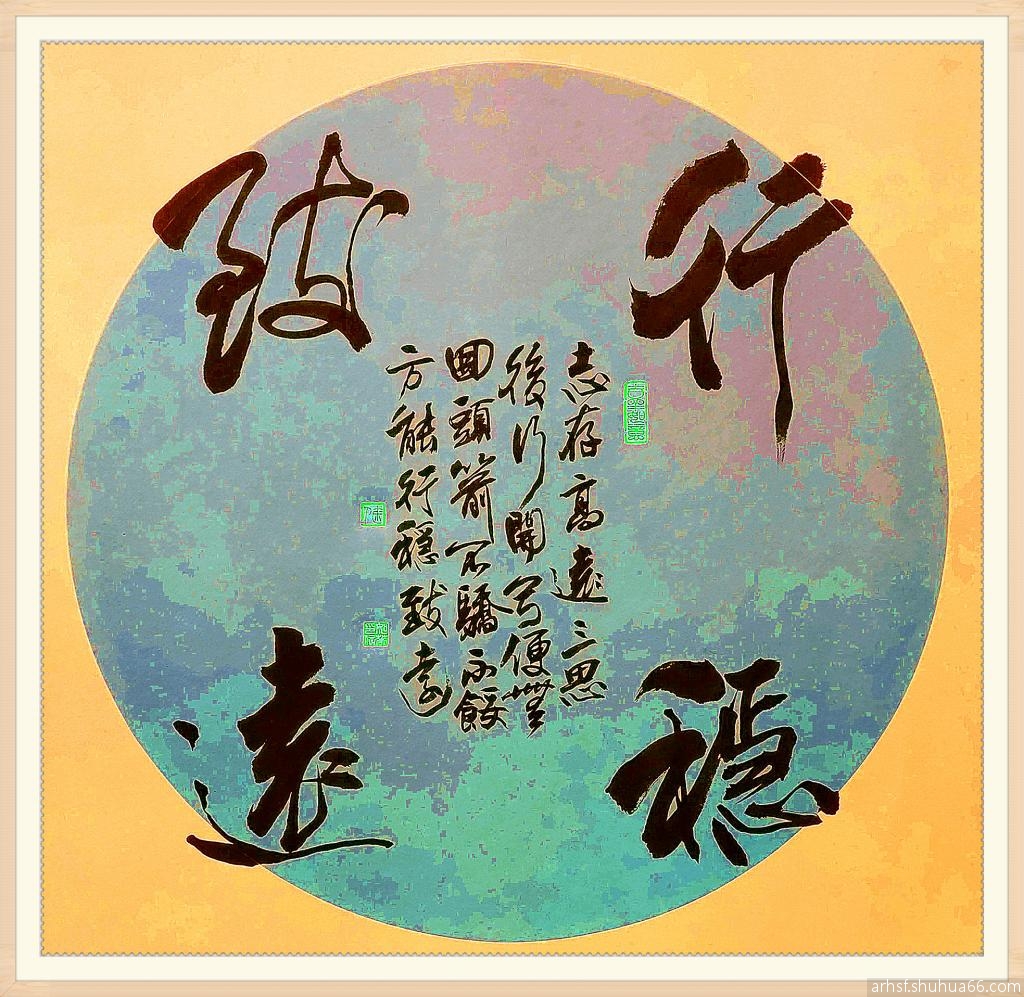 行穩
致遠
志存高遠三思
後行開弓便無
回頭箭不驕不餒
方能行穩致遠
arhsf.shuhua66.com